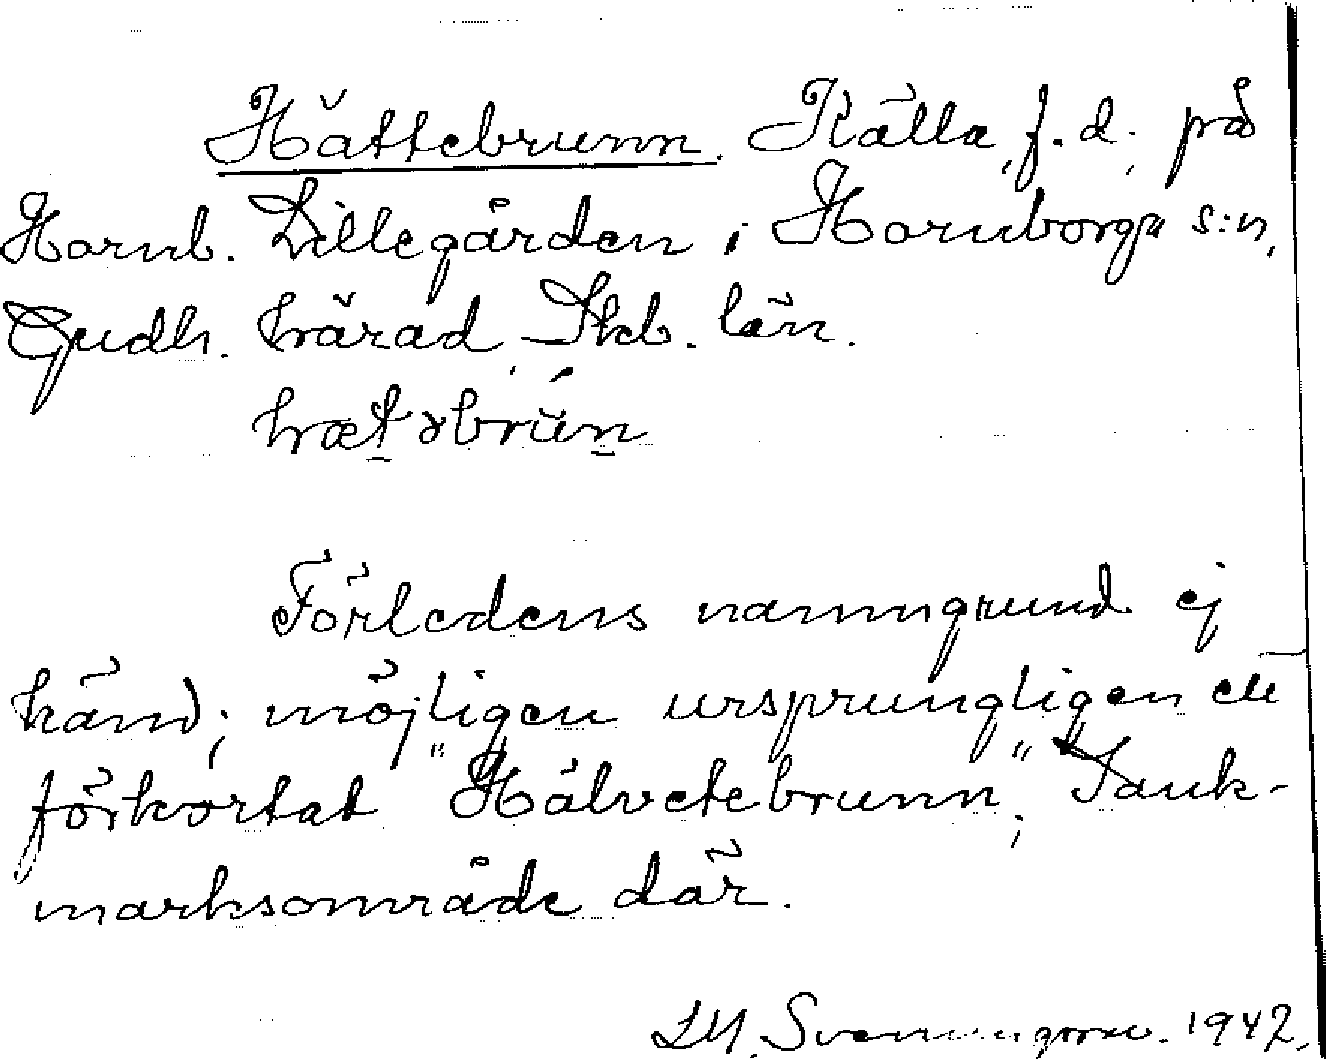 Hättebrunn. Källa, f. d., på
Hornb. Lillegården i Hornborga s:n,
Gudh. härad, Skb. län.
hætəbrùn

Förledens namngrund ej
känd; möjligen ursprungligen ett
förkortat "Hälvetebrunn"; Sank-
marksområde där.

1942.